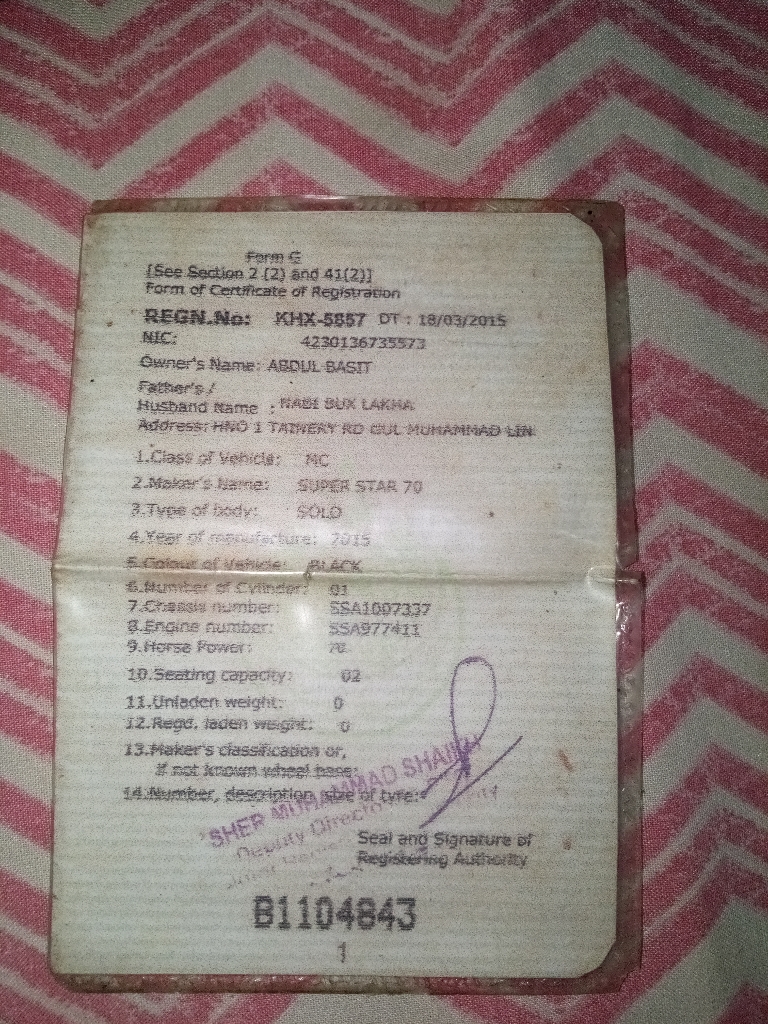 Form G
[See Section 2 (2) and 41(2)]
Form of Certificate of Registration
REGN.No: KHX-5857 DT : 18/03/2015
NIC: 4230136735573
Owner's Name: ABDUL BASIT
Father's /
Husband Name : NABI BUX LAKHA
Address: HNO 1 TATNERY RD GUL MUHAMMAD LIN
1.Class of Vehicle: MC
2.Maker's Name: SUPER STAR 70
3.Type of body: SOLO
4.Year of manufacture: 2015
5.Colour of Vehicle: BLACK
6.Number of Cylinder: 01
7.Chassis number: SSA1007337
8.Engine number: SSA977411
9.Horse Power: 70
10.Seating capacity: 02
11.Unladen weight: 0
12.Regd. laden weight: 0
13.Maker's classification or,
if not known wheel base:
14.Number, description size of tyre:
SHER MUHAMMAD SHAIKH
Deputy Director
Seal and Signature of
Registering Authority
B1104843
1